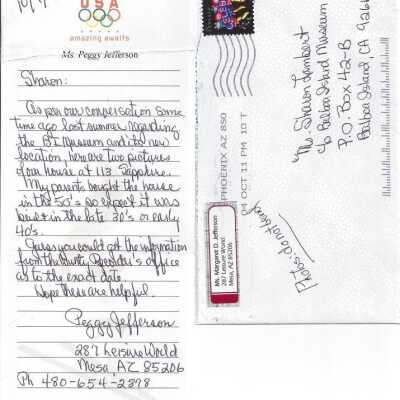 10/9
USA
amazing awaits
Ms. Peggy Jefferson
Sharon:
As per our conversation some
time ago last summer regarding
the B.I. Museum and its new
location, here are two pictures
of our house at 113 Sapphire.
My parents bought the house
in the 50's so expect it was
built in the late 30's or early
40's.
Guess you could get the information
from the County Recorder's office
as to the exact date.
Hope these are helpful.
Peggy Jefferson
287 Leisure World
Mesa, AZ 85206
Ph 480-654-2898
PHOENIX AZ 850
04 OCT 11 PM 10 T
Ms. Margaret D. Jefferson
287 Leisure World
Mesa, AZ 85206
Ms. Sharon Lambert
c/o Balboa Island Museum
P.O. Box 42-B
Balboa Island, CA
Photos: do not bend